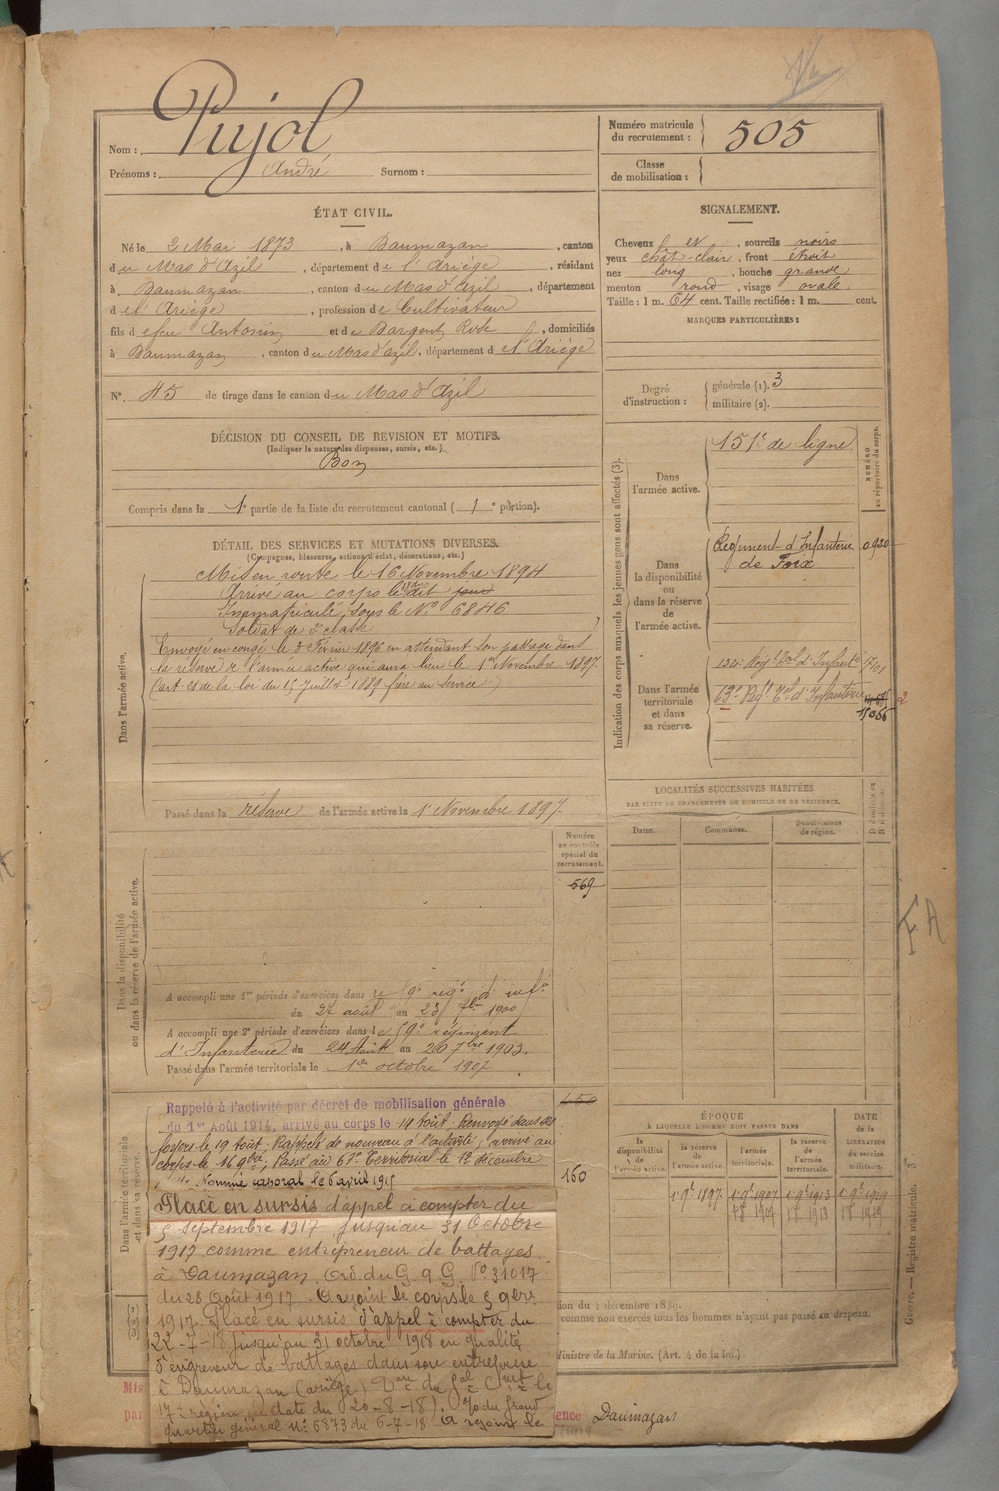 Nom : Pujol
Prénoms : André Surnom :
Numéro matricule du recrutement : 505
Classe de mobilisation :
ÉTAT CIVIL.
Né le 2 Mai 1873, à Daumazan, canton
du Mas d'Azil, département de l'Ariège, résidant
à Daumazan, canton du Mas d'Azil, département
de l'Ariège, profession de Cultivateur
fils de feu Antonin et de Dargent Rose, domiciliés
à Daumazan, canton du Mas d'azil, département de l'Ariège
N° 45 de tirage dans le canton du Mas d'Azil
SIGNALEMENT.
Cheveux et, sourcils noirs
yeux chât-clair, front étroit
nez long, bouche grande
menton rond, visage ovale
Taille : 1 m. 64 cent. Taille rectifiée : 1 m. cent.
MARQUES PARTICULIÈRES :
Degré d'instruction : générale (1). 3
militaire (2).
DÉCISION DU CONSEIL DE REVISION ET MOTIFS.
(Indiquer la nature des dispenses, sursis, etc.)
Bon
Compris dans la 1e partie de la liste du recrutement cantonal (1e portion).
DÉTAIL DES SERVICES ET MUTATIONS DIVERSES.
(Campagnes, blessures, actions d'éclat, décorations, etc.)
Dans l'armée active.
Mis en route le 16 Novembre 1894
Arrivé au corps le dit jour
Immatriculé sous le N° 6846
Soldat de 2e classe
Envoyé en congé le 8 Février 1896 en attendant son passage dans
la réserve de l'armée active qui aura lieu le 1er Novembre 1897
(art de la loi du 15 Juillet 1889 frère au service)
Passé dans la réserve de l'armée active le 1er Novembre 1897
Indication des corps auxquels les jeunes gens sont affectés (3).
NUMÉRO au répertoire du corps.
Dans l'armée active.
151e de ligne
Dans la disponibilité ou dans la réserve de l'armée active.
Régiment d'Infanterie 0920
de Foix
Dans l'armée territoriale et dans sa réserve.
132e Régt Tal d'Infanterie
Régt Tal d'Infanterie
LOCALITÉS SUCCESSIVES HABITÉES
PAR SUITE DE CHANGEMENTS DE DOMICILE OU DE RÉSIDENCE.
Dates. Communes. Subdivisions de région.
Numéro au contrôle spécial du recrutement.
569
Dans la disponibilité ou dans la réserve de l'armée active.
A accompli une 1re période d'exercices dans le
du 27 août au 23 7bre 1900
A accompli une 2e période d'exercices dans le 59e régiment
d'Infanterie du 24 Août au 20 7bre 1903.
Passé dans l'armée territoriale le 1er octobre 1907
Dans l'armée territoriale et dans sa réserve.
Rappelé à l'activité par décret de mobilisation générale
du 1er Août 1914, arrivé au corps le 14 Août. Renvoyé dans ses
foyers le 19 Août, Rappelé de nouveau à l'activité, arrivé au
corps le 16 9bre, Passé au Territorial le 1er décembre
Nommé caporal le 6 avril 1915
160
Placé en sursis d'appel à compter du
5 Septembre 1917 jusqu'au 31 Octobre
1917 comme entrepreneur de battages
à Daumazan, Ord. du G. Q. G. N° 31017
du 28 Août 1917. A rejoint le corps le 5 9bre
1917. Placé en sursis d'appel à compter du
22-7-18 jusqu'au 31 octobre 1918 en qualité
d'engreneur de battages dans son entreprise
à Daumazan (ariège) Don du Gal Ct le
17e région date du 20-8-18) du Grand
quartier général N° 6873 du 6-7-18. A rejoint le
ÉPOQUE
À LAQUELLE L'HOMME DOIT PASSER DANS
la disponibilité de l'armée active.
la réserve de l'armée active.
l'armée territoriale.
la réserve de l'armée territoriale.
DATE de la LIBÉRATION du service militaire.
ion du 4 décembre 1889.
comme non exercés tous les hommes n'ayant pas passé au drapeau.
Ministre de la Marine. (Art. 4 de la loi.)
ence Daumazan
Guerre. — Registre matricule.
FA